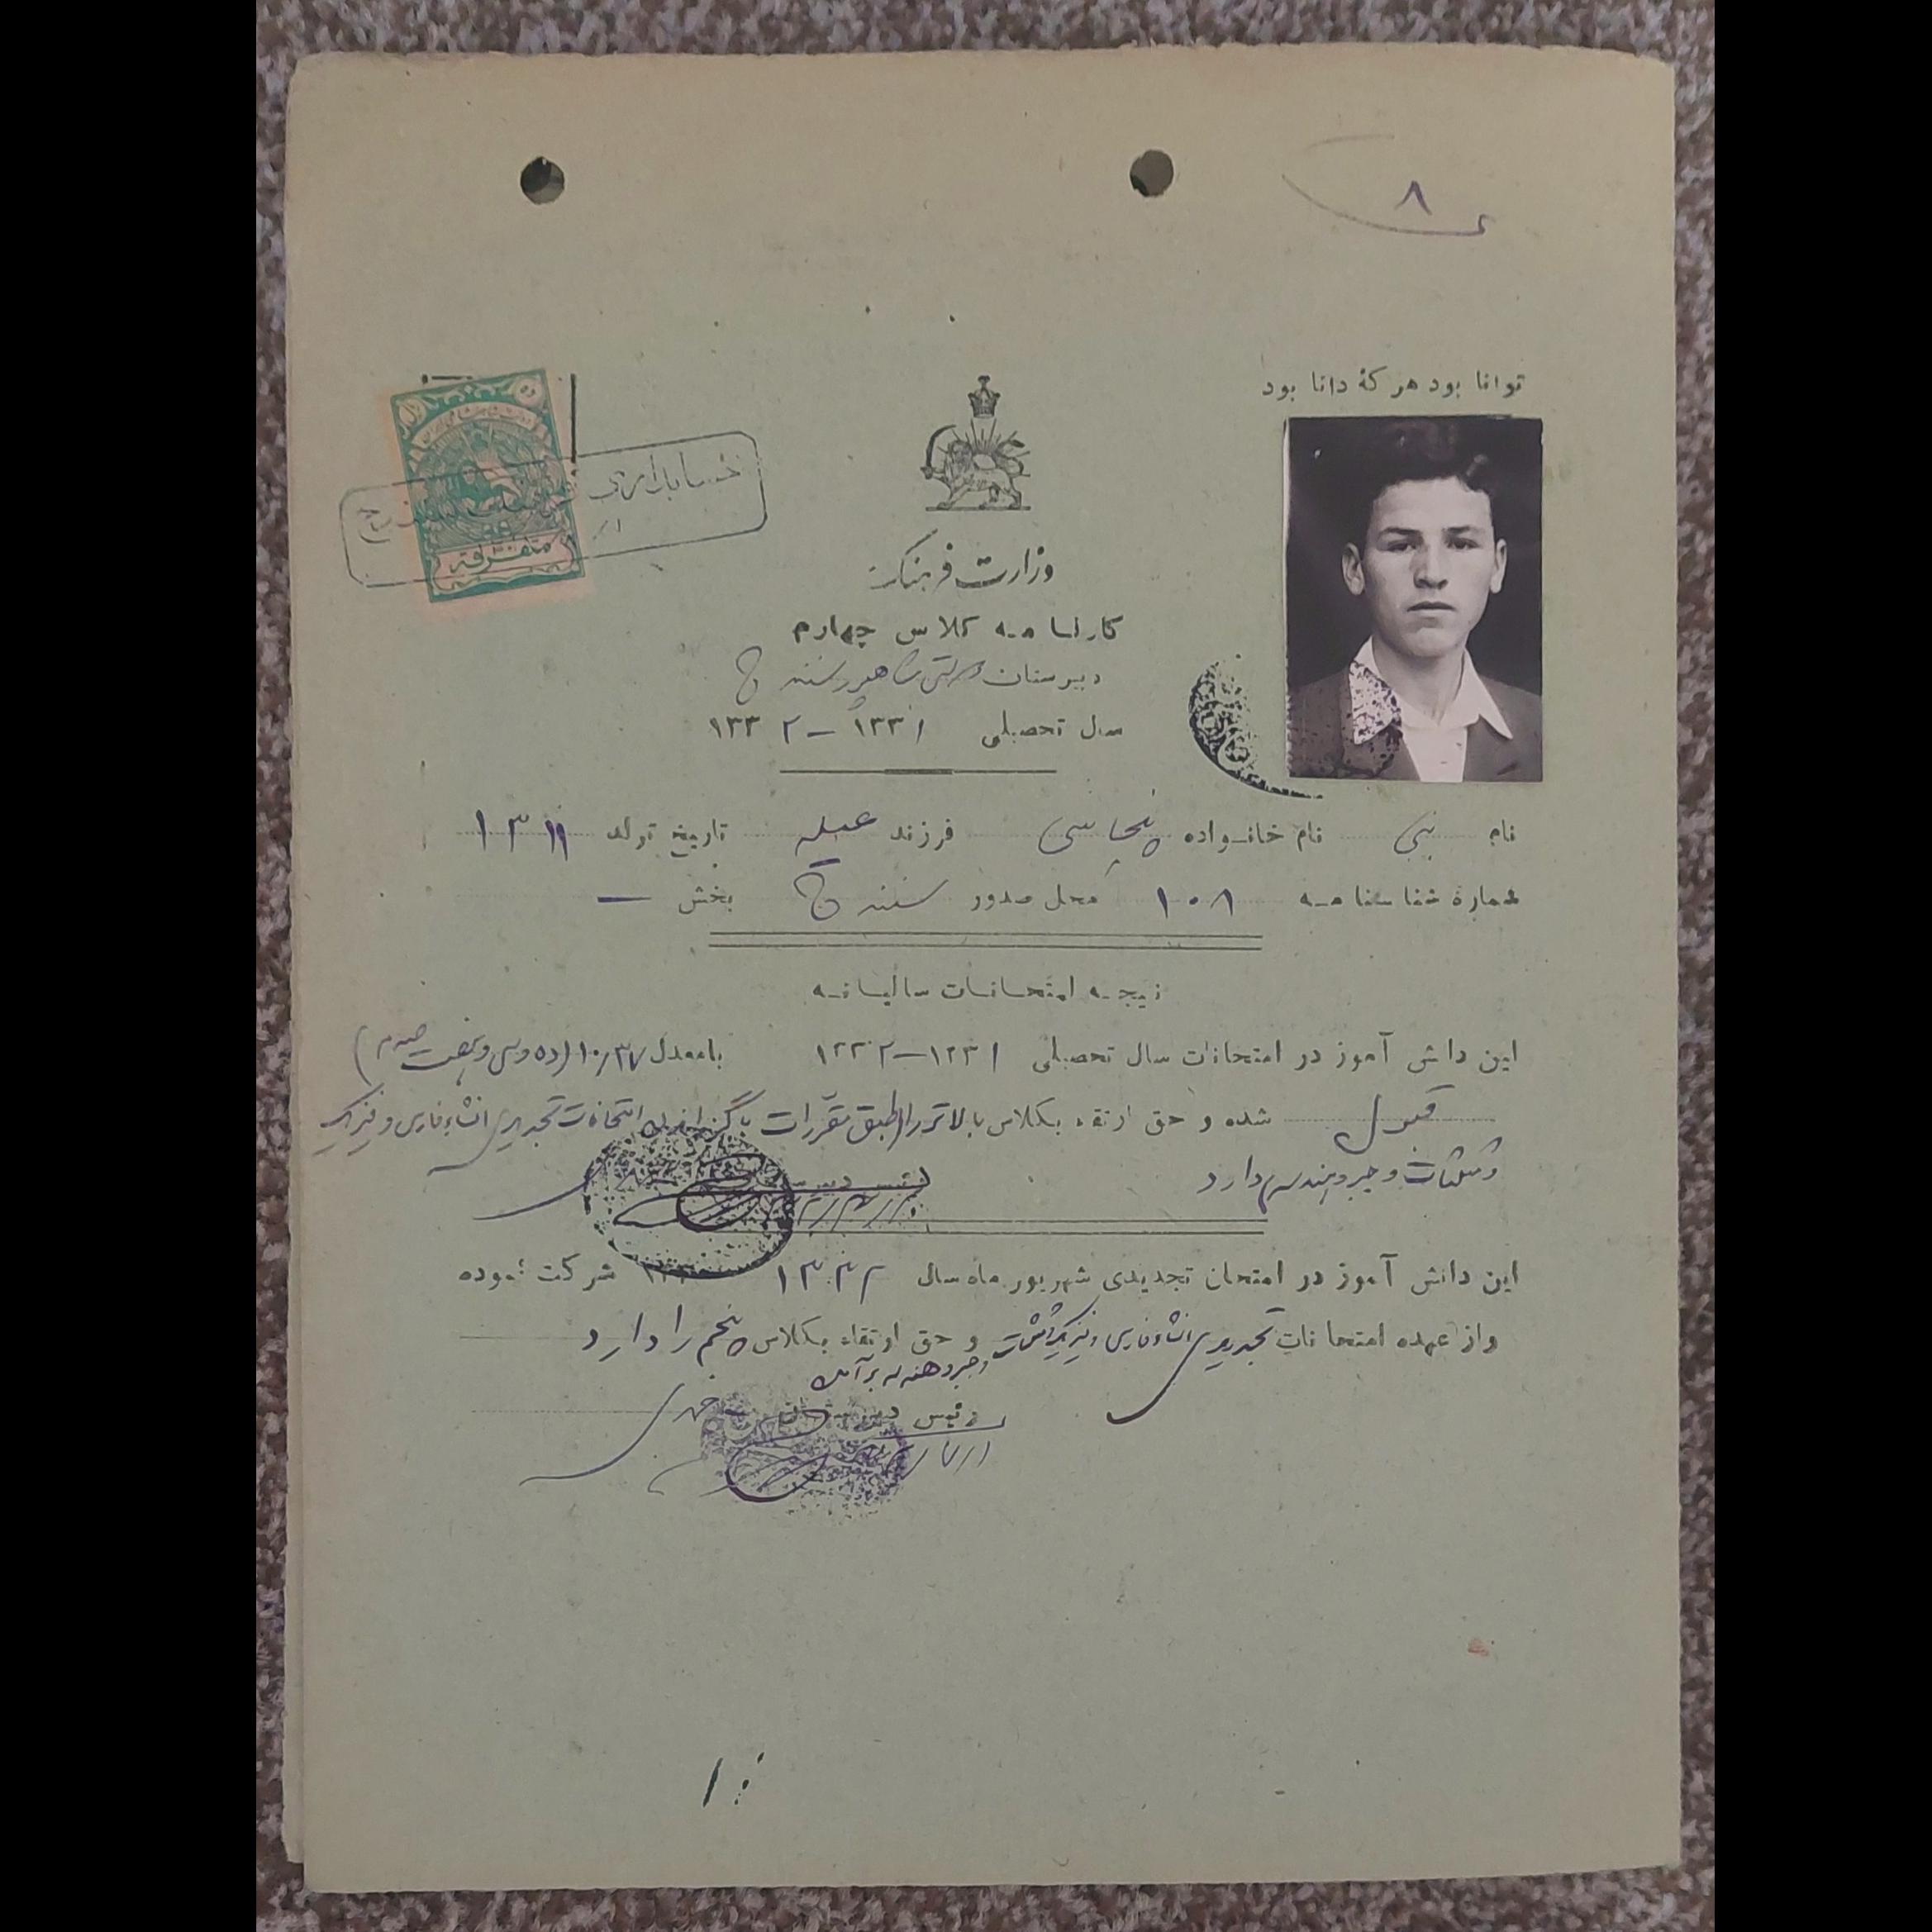 ۸
توانا بود هر که دانا بود
ده
دولت شاهنشاهی ایران
متفرقه
حسابداری فرهنگ سنندج
وزارت فرهنگ
کارنامه کلاس چهارم
دبیرستان شاهپور سنندج
سال تحصیلی ۱۳۳۱ – ۱۳۳۲
نام نبی نام خانواده فرزند تاریخ تولد
شمارهٔ شناسنامه ۱۰۸ محل صدور سنندج بخش —
نتیجه امتحانات سالیانه
این دانش آموز در امتحانات سال تحصیلی ۱۳۳۱–۱۳۳۲ بامعدل ۱۰/۳۷ (ده و سی و هفت صدم)
قبول شده و حق ارتقاء بکلاس بالاتر را طبق مقررات با گذراندن امتحانات تجدیدی انشاء فارسی و فیزیک
و مثلثات و جبر و هندسه دارد
رئیس دبیرستان
این دانش آموز در امتحان تجدیدی شهریور ماه سال ۱۳۳۲ شرکت نموده
واز عهده امتحانات تجدیدی انشاء فارسی و فیزیک و مثلثات و جبر و هندسه بر آمده و حق ارتقاء بکلاس پنجم را دارد
رئیس دبیرستان